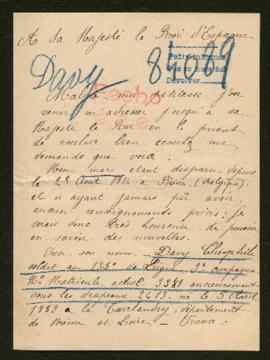 A Sa Majesté le Roi d'Espagne
Davy
84009
Malgré ma petitesse j'ose
venir m'adresser jusqu'à sa
Majesté le Roi en le priant
de vouloir bien écouter ma
demande que voici :
Mon mari étant disparu depuis
le 23 Août 1914 à (Belgique)
et n'ayant jamais pu avoir
aucun renseignements précis; je
serais très heureuse de pouvoir
en savoir des nouvelles.
Voici son nom : Davy Théophile
soldat au 135e de Ligne, 9e compagnie
No Matricule actuel 3381 anciennement
sous les drapeaux 2413. né le 5 Avril
1883 à la département
de Maine et Loire, France.